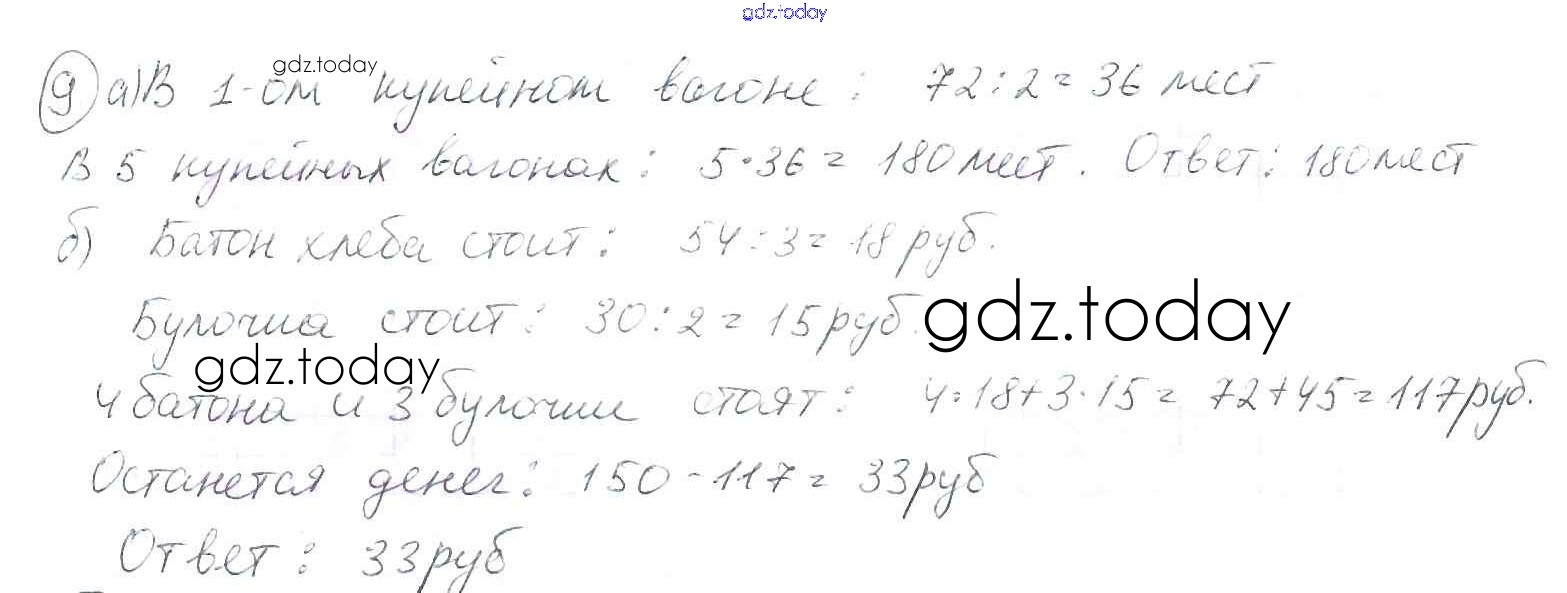 gdz.today
gdz.today
9 а) В 1-ом купейном вагоне: 72:2=36 мест
В 5 купейных вагонах: 5·36=180 мест. Ответ: 180 мест
б) Батон хлеба стоит: 54:3=18 руб.
Булочка стоит: 30:2=15 руб.
gdz.today
gdz.today
4 батона и 3 булочки стоят: 4·18+3·15=72+45=117 руб.
Останется денег: 150-117=33 руб
Ответ: 33 руб